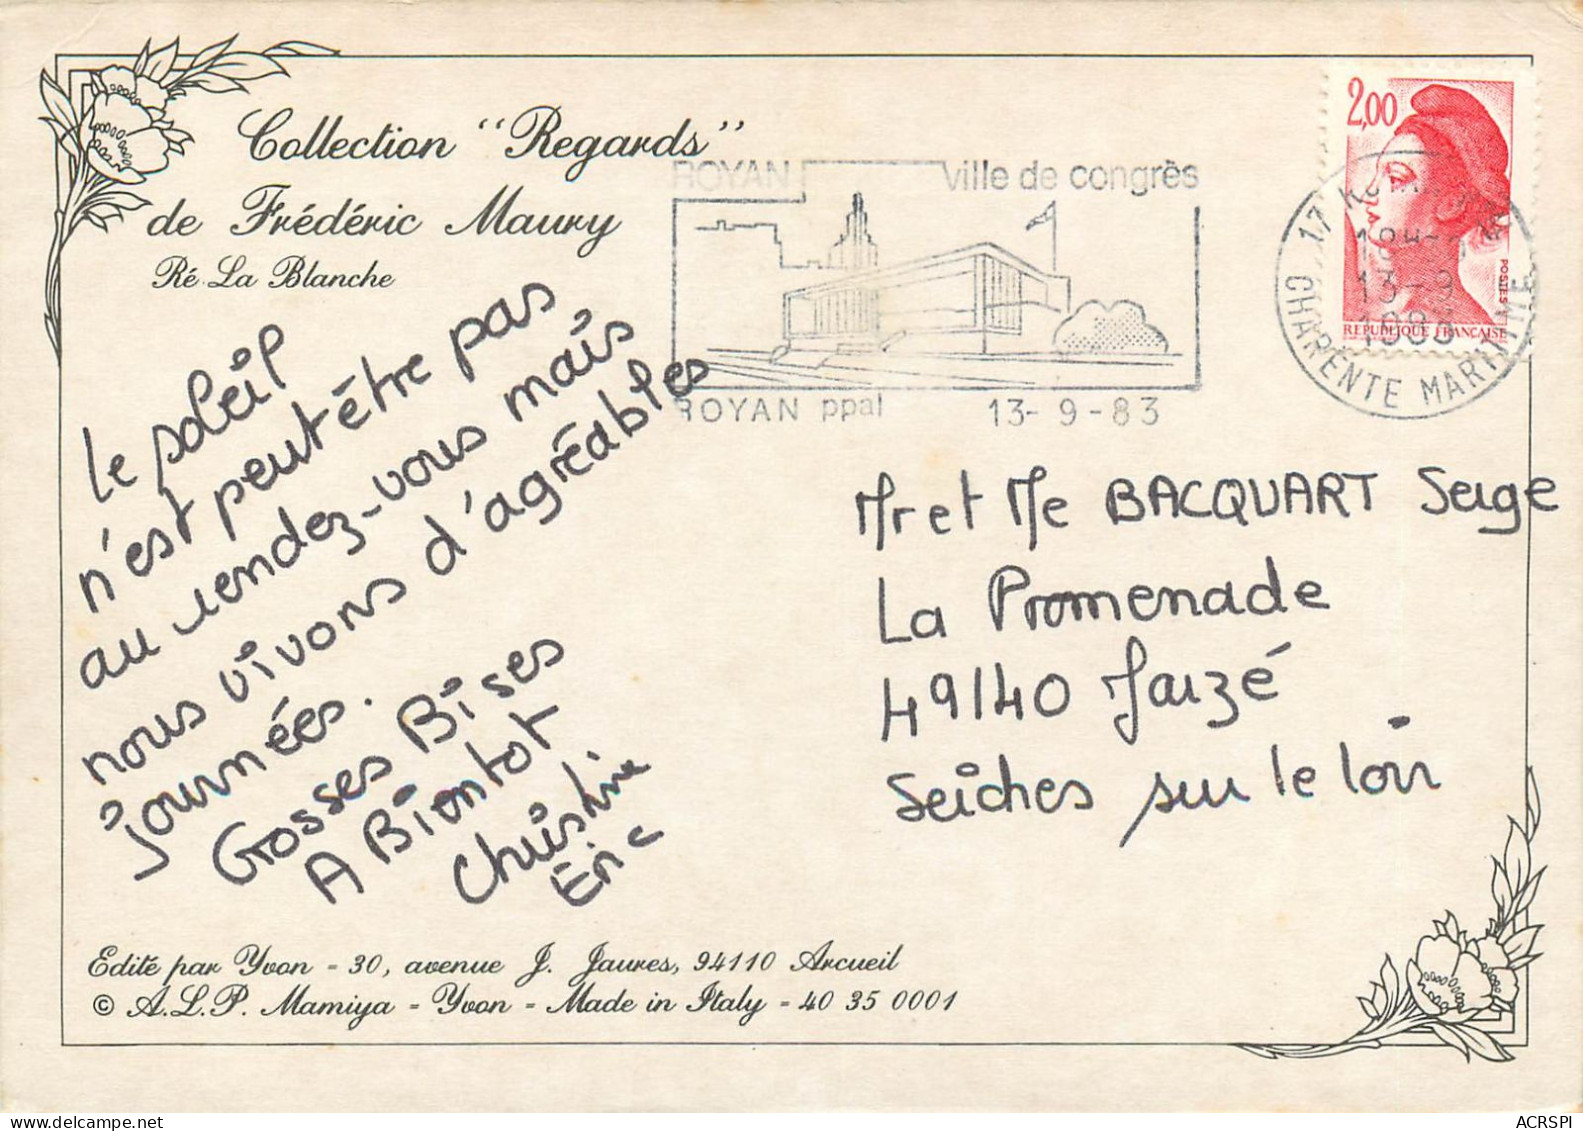 Collection "Regards"
de Frédéric Maury
Ré La Blanche
ROYAN ville de congrès
ROYAN ppal 13-9-83
2,00
POSTES
REPUBLIQUE FRANÇAISE
17
13-9
1983
CHARENTE MARITIME
le soleil
n'est peut être pas
au rendez-vous mais
nous vivons d'agréables
journées.
Grosses Bises
A Bientot
Christine
Éric
Mr et Me BACQUART Serge
La Promenade
49140 Jarzé
Seiches sur le loir
Edité par Yvon - 30, avenue J. Jaures, 94110 Arcueil
© A.L.P. Mamiya - Yvon - Made in Italy - 40 35 0001
ACRSPI